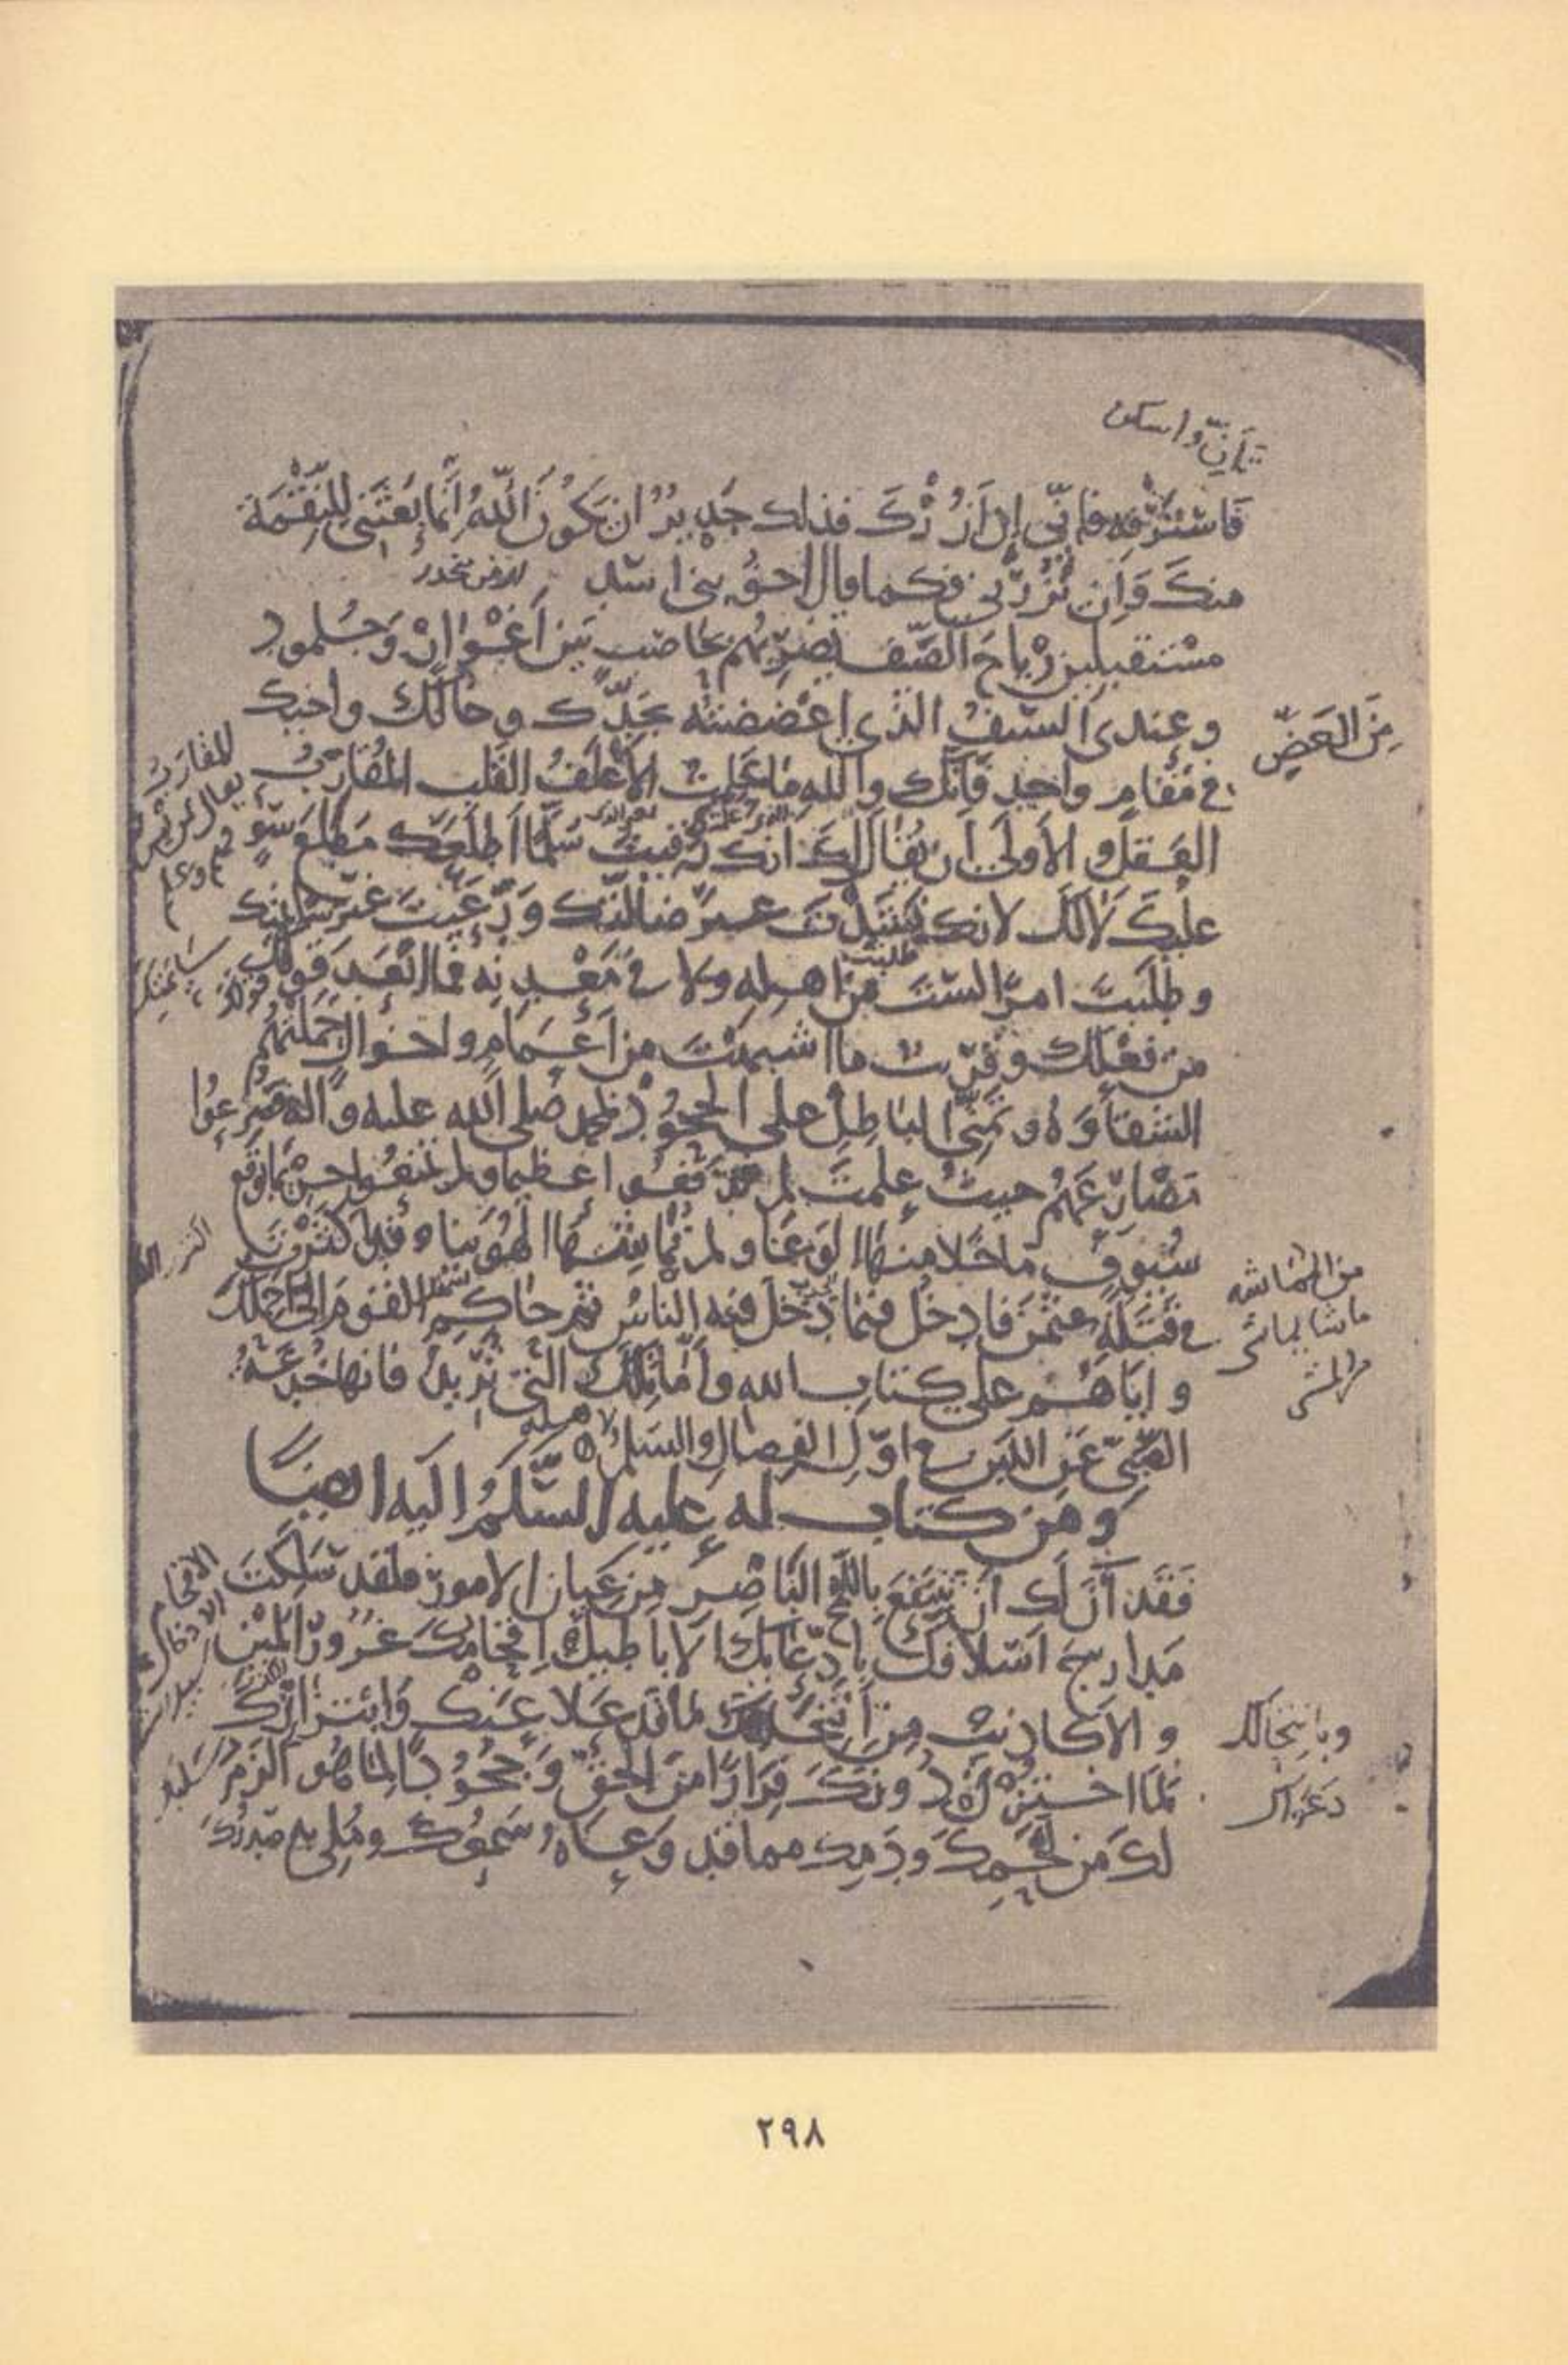 تأنّ واسكن
فاسترفه فانّي إن أزرك فذلك جدير ان يكون اللّه إنّما بعثني للنّقمة
منك وإن تزرني فكما قال اخو بني اسد
مستقبلين رياح الصّيف تضربهم بحاصب بين أغوار وجلمود
وعندى السّيف الذي اعضضته بجدّك وخالك واخيك
من العضّ
في مقام واحد فانّك والله ما علمت الأغلف القلب المقارب
المقارب
العقل والاولى ان يقال لك انك رقيت سلّما اطلعك مطلع سوء
عليك لا لك لانك نشدت غير ضالّتك ورعيت غير سائمتك
وطلبت امرا لست من اهله ولا في معدنه فما ابعد قولك
من فعلك وقريب ما اشبهت من أعمام واخوال حملتهم
الشقاوة وتمنّي الباطل على الجحود بمحمد صلى الله عليه وآله فصرعوا
مصارعهم حيث علمت لم يدفعوا عظيما ولم يمنعوا حريما بوقع
سيوف ما خلا منها الوغا ولم تماشها الهوينا وقد اكثرت
من المماشاة
في قتلة عثمن فادخل فيما دخل فيه الناس ثم حاكم القوم إليّ احملك
وإياهم على كتاب الله وأمّا تلك التي تريد فانها خدعة
الصّبيّ عن اللبن في اوّل الفصال والسلم لاهله
ومن كتاب له عليه السّلم اليه ايضًا
فقد آن لك أن تنتفع باللّمح الباصر من عيان الامور فلقد سلكت
مدارج اسلافك بادّعائك الاباطيل إقحامك غرور المين
والاكاذيب من انتحالك ما قد علا عنك وابتزازك
وبانتحالك
لما اختزن دونك فرارا من الحقّ وجحودا لما هو الزم
لك من لحمك ودمك مما قد وعاه سمعك وملى به صدرك
٢٩٨